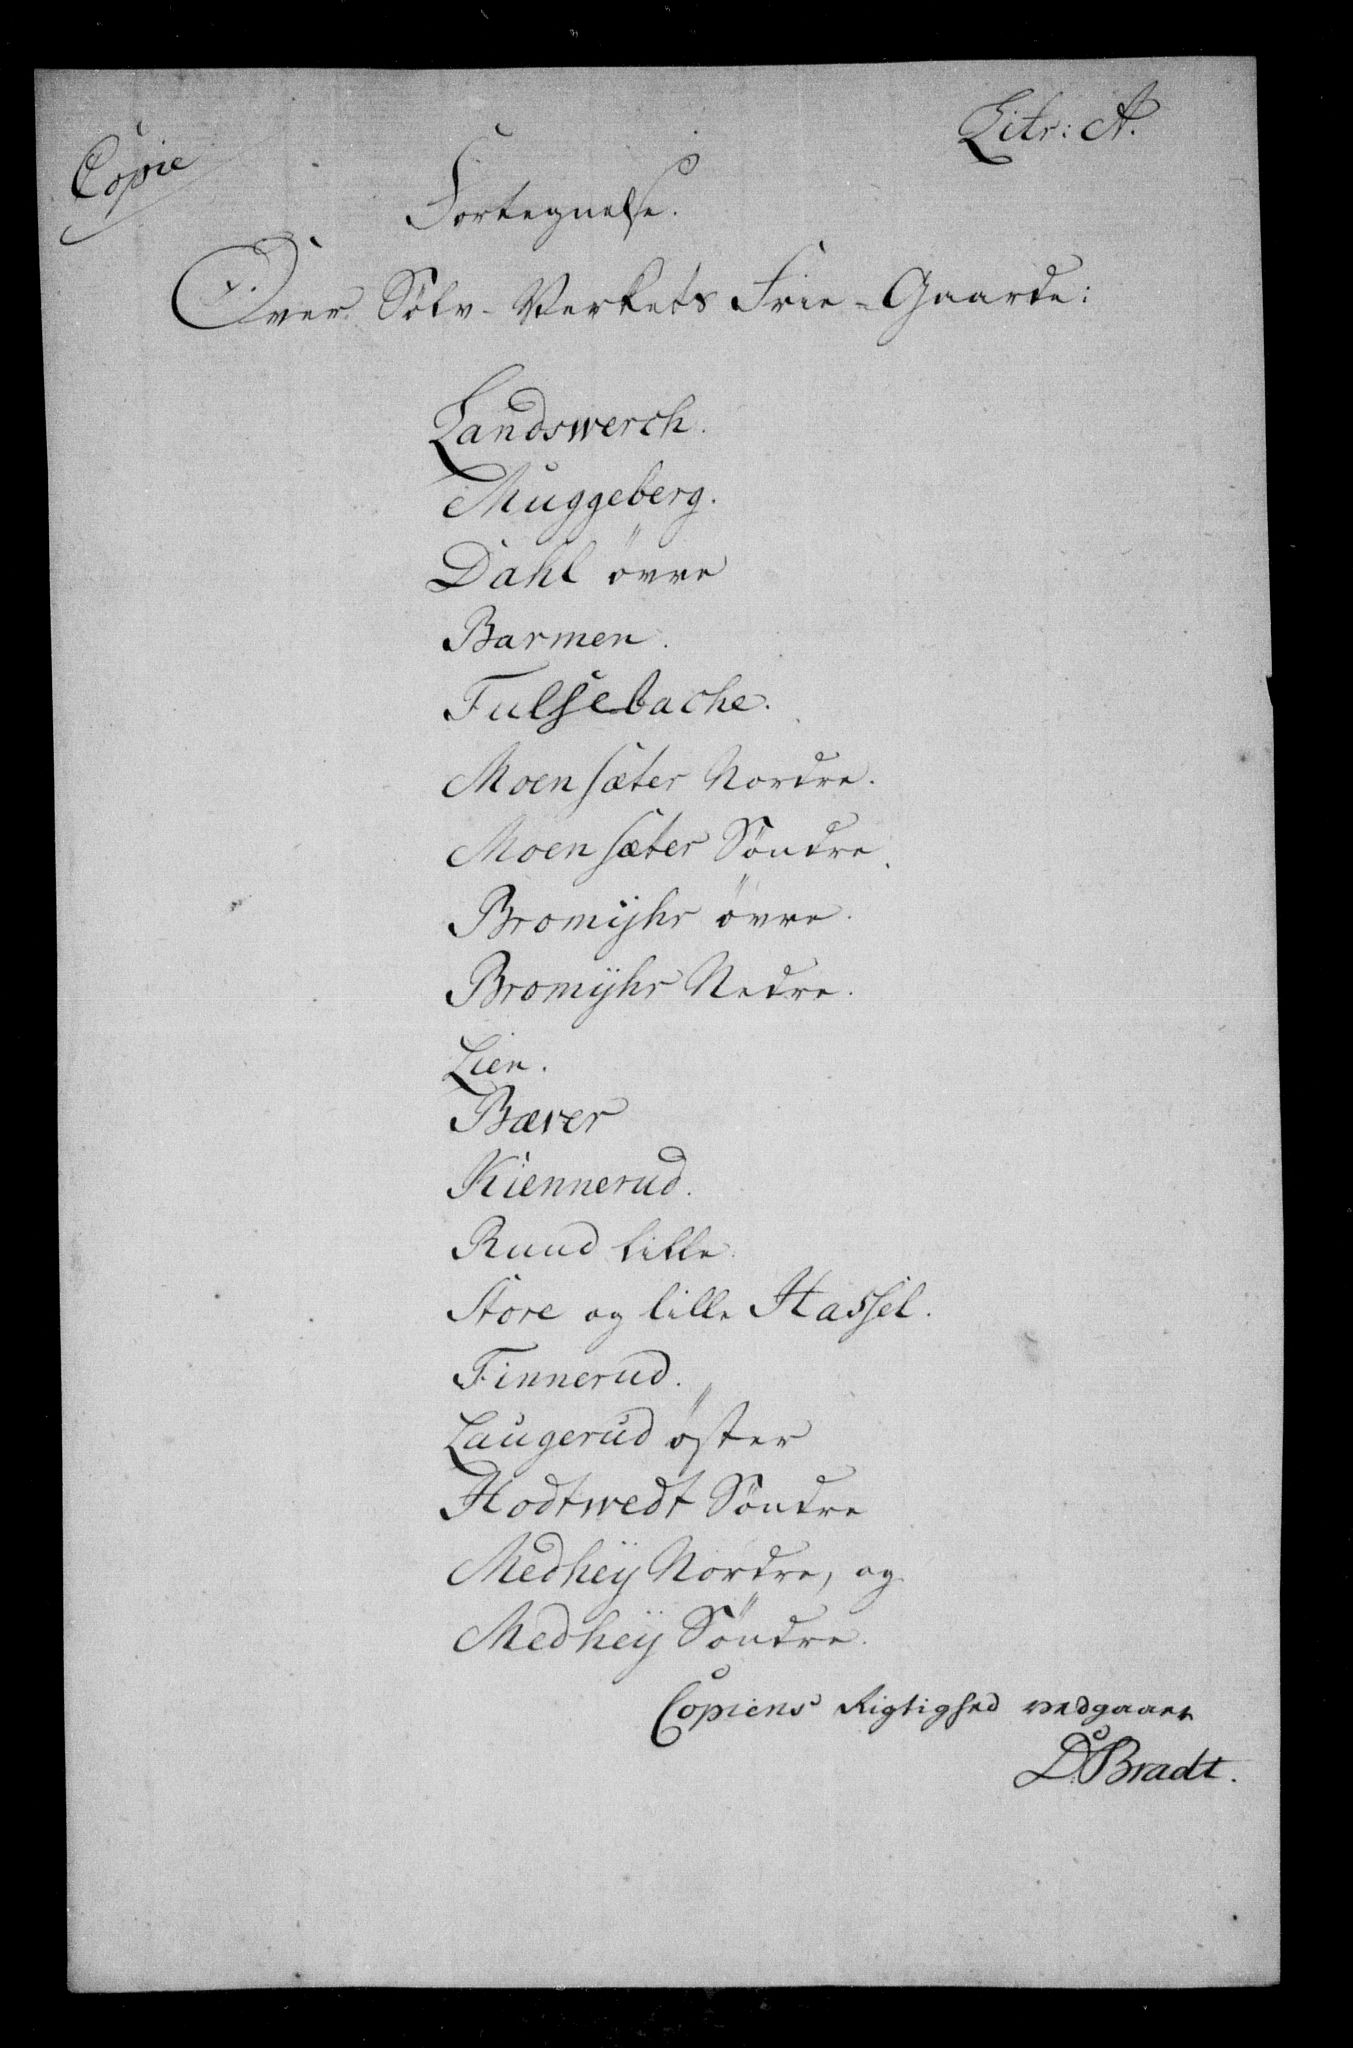 Litr: A.
Copie
Fortegnelse.
Over Sölv-Verkets Frie-Gaarde:
Landswerch.
Muggeberg.
Dahl övre
Barmen.
Fulsebache.
Moensæter Nordre.
Moensæter Söndre.
Bromÿhr övre.
Bromÿhr Nedre.
Lien.
Bæver
Kiennerud.
Ruud lille.
Store og lille Hassel.
Finnerud.
Laugerud öster
Hodtwedt Söndre
Medheÿ Nordre, og
Medheÿ Söndre.
Copiens Rigtighed vedgaaer
D: Bradt.